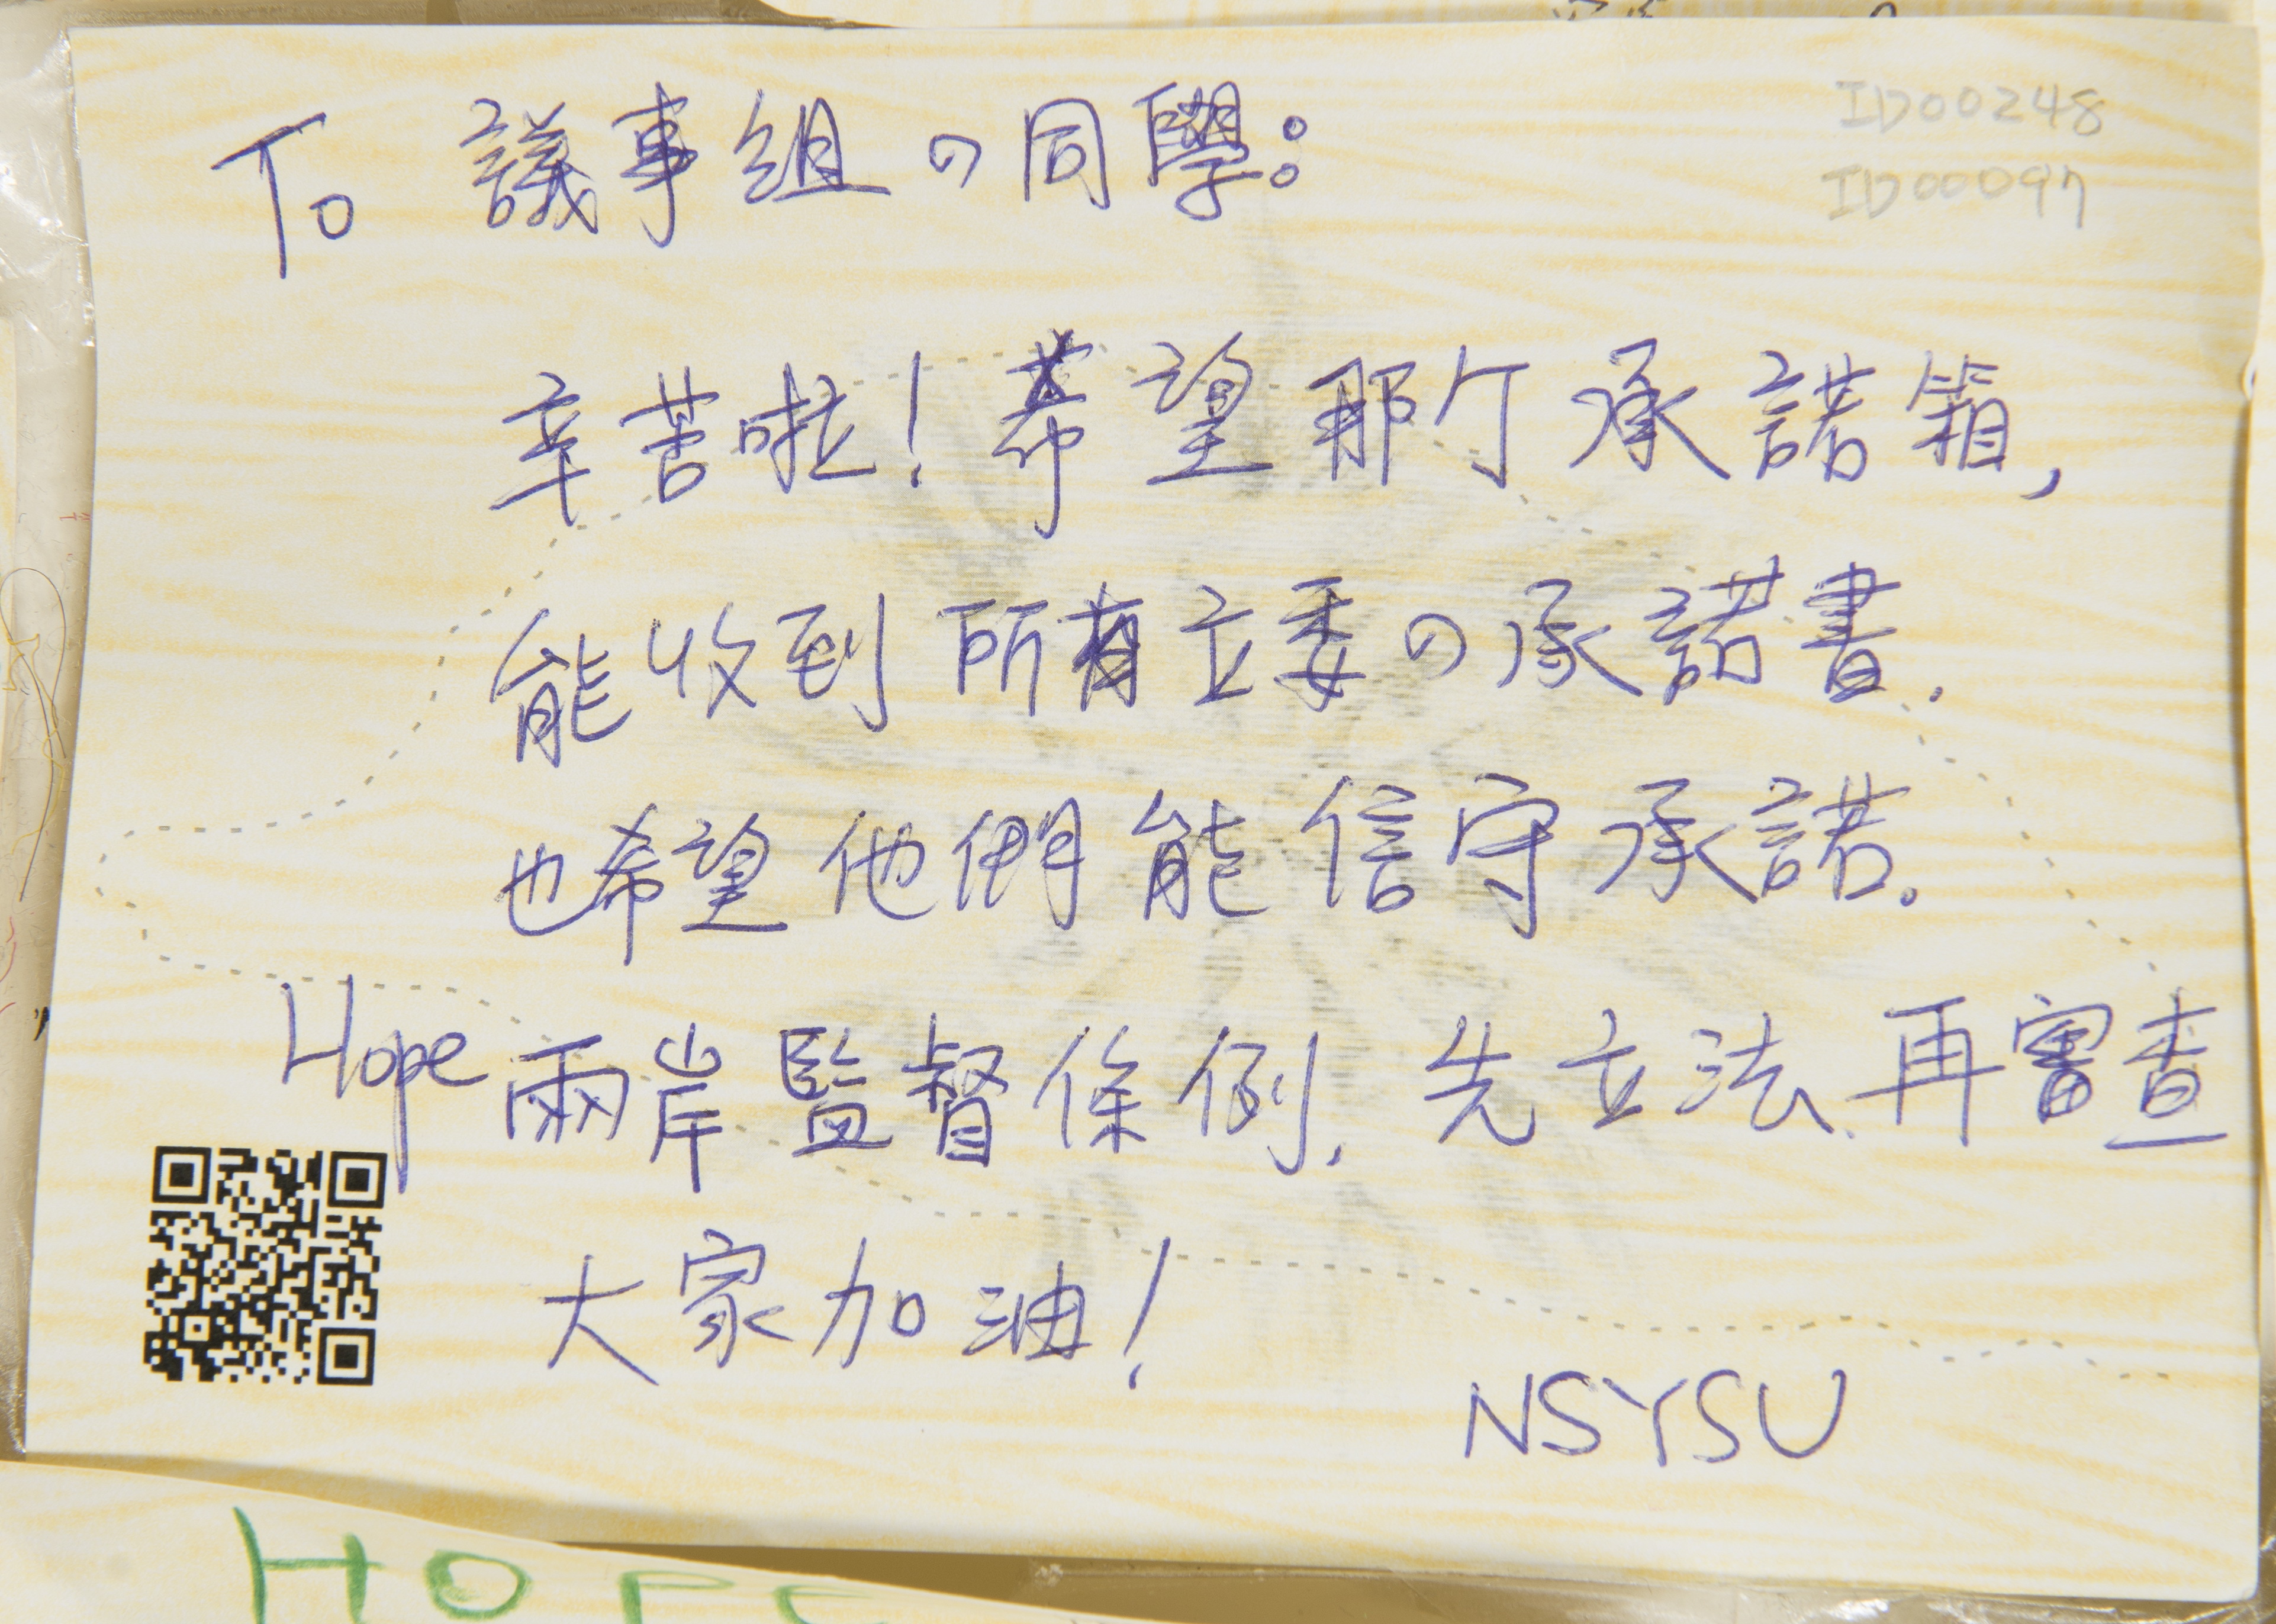 To 議事組の同學:
ID00248
ID00097
辛苦啦!希望那个承諾箱,
能收到所有立委の承諾書.
也希望他們能信守承諾。
Hope 兩岸監督條例,先立法、再審查
大家加油!
NSYSU
HOPE